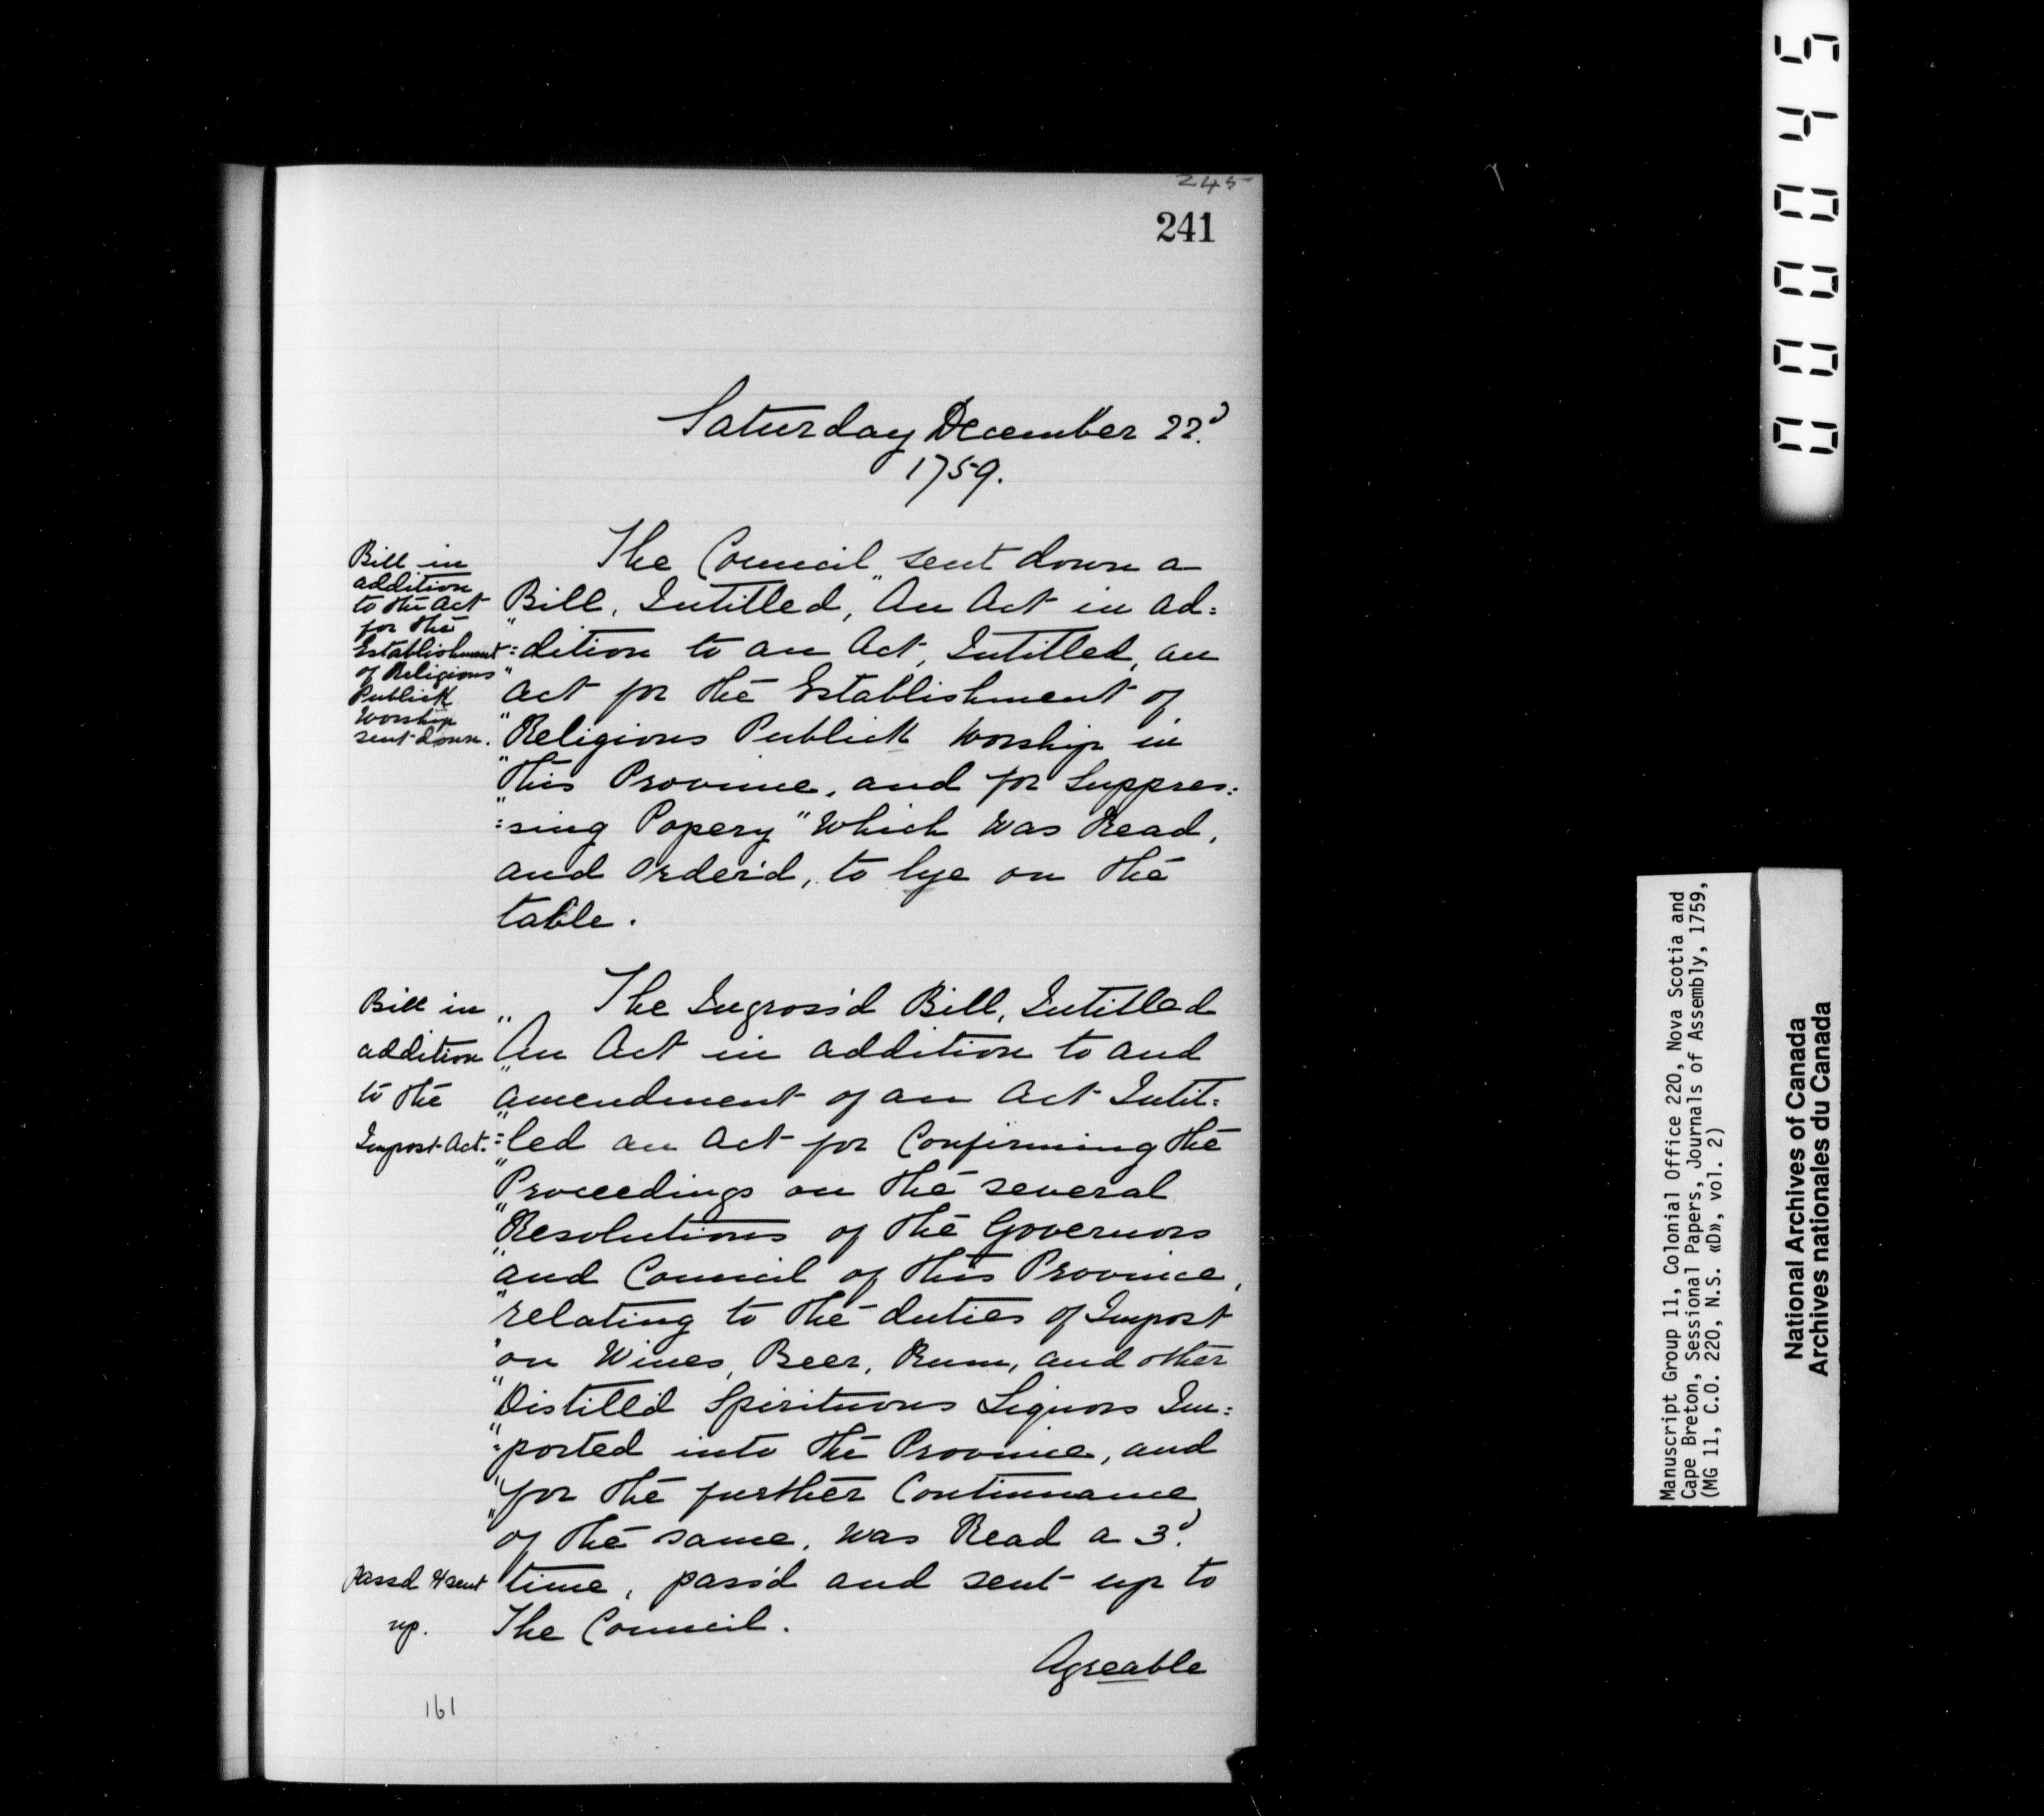 245
241
Saturday December 22.d
1759.
Bill in
addition
to the Act
for the
Establishment
of Religious
Publick
Worship
sent down.
The Council sent down a
Bill, Intitled, "An Act in ad:
":dition to an Act, Intitled, an
"Act for the Establishment of
"Religious Publick Worship in
"this Province, and for Suppres:
":sing Popery" Which was Read,
and Order'd, to lye on the
table.
Bill in
addition
to the
Impost Act.
The Ingross'd Bill, Intitled
"An Act in addition to and
"amendment of an Act Intit:
":led an Act for Confirming the
"Proceedings on the several
"Resolutions of the Governors
"and Council of this Province,
"relating to the duties of Impost
"on Wines, Beer, Rum, and other
"Distill'd Spirituous Liquors Im:
":ported into the Province, and
"for the further Continuance
"of the same, was Read a 3.d
time, pass'd and sent up to
The Council.
Passd & sent
up.
Agreable
161
000045
Manuscript Group 11, Colonial Office 220, Nova Scotia and
Cape Breton, Sessional Papers, Journals of Assembly, 1759,
(MG 11, C.O. 220, N.S. «D», vol. 2)
National Archives of Canada
Archives nationales du Canada